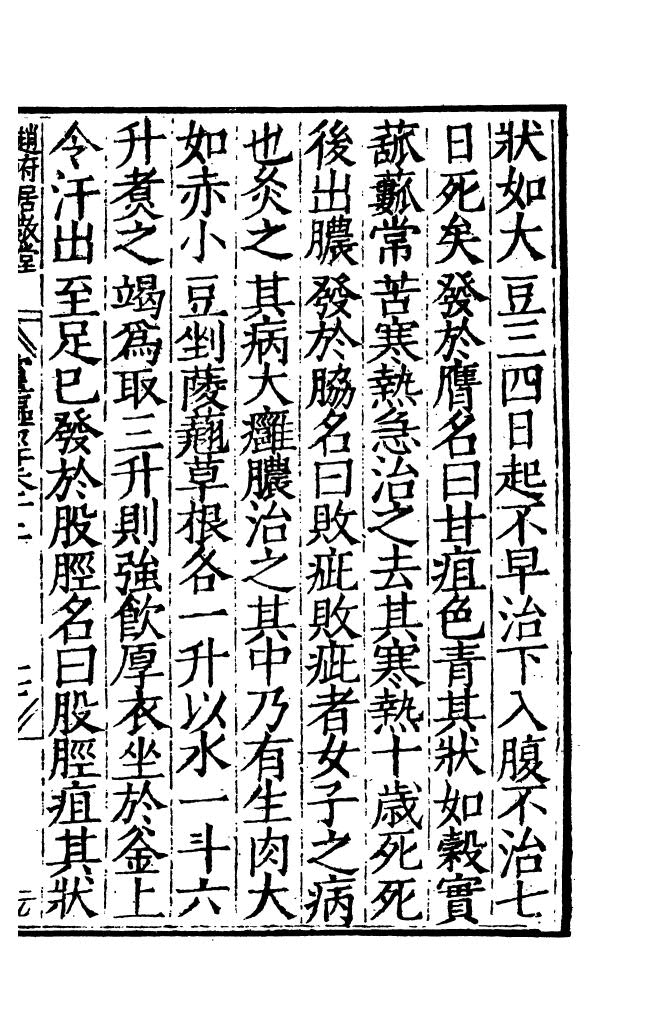 狀如大豆三四日起不早治下入腹不治七
日死矣發於膺名曰甘疽色青其狀如穀實
㼋蓏常苦寒熱急治之去其寒熱十歲死死
後出膿發於脇名曰敗疵敗疵者女子之病
也灸之其病大癰膿治之其中乃有生肉大
如赤小豆剉䔖翹草根各一升以水一斗六
升煑之竭爲取三升則強飮厚衣坐於釜上
令汗出至足已發於股脛名曰股脛疽其狀
趙府居敬堂